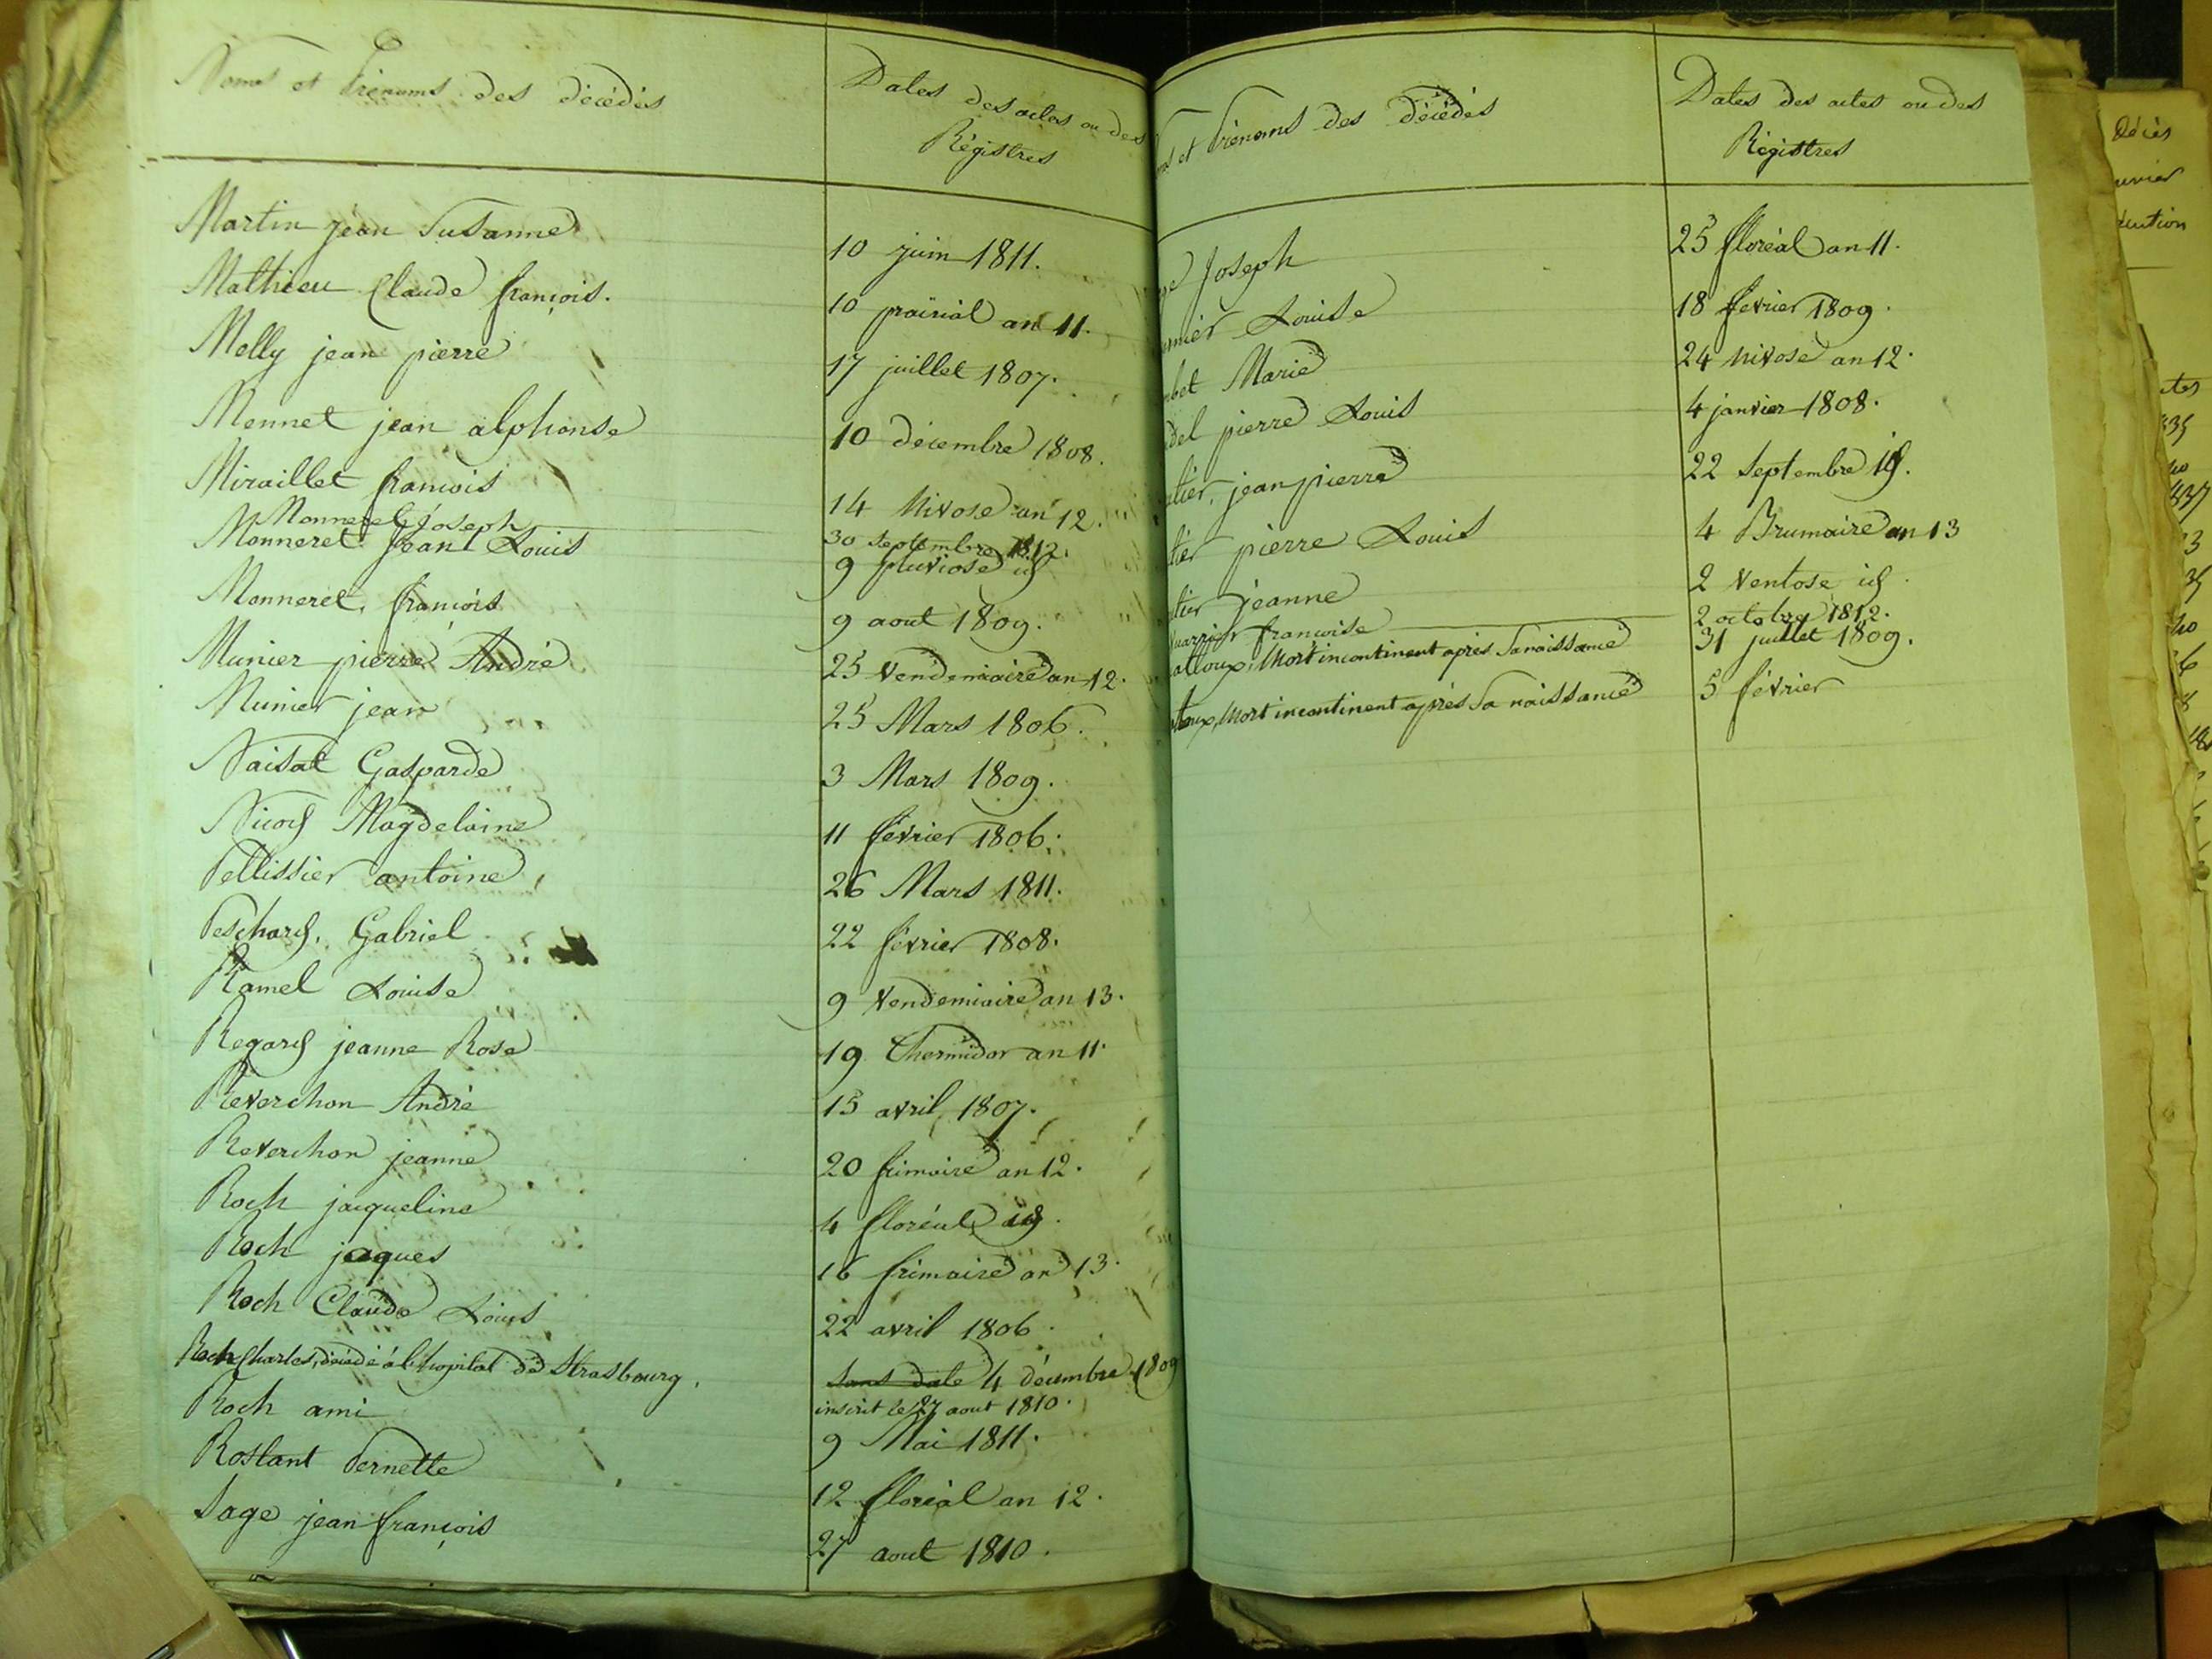 Noms et Prénoms des décédés
Dates des actes ou des
Régistres
Martin jean Susanne 10 juin 1811.
Mathieu Claude françois. 10 prairial an 11.
Melly jean pierre 17 juillet 1807.
Mennet jean alphonse 10 décembre 1808.
Miraillet francois 14 Nivose an 12.
Monneret Joseph 30 septembre 1812.
Monneret Jean Louis 9 pluviose id
Monneret, francois 9 aout 1809.
Munier pierre André 25 Vendemiaire an 12.
Munier jean 25 Mars 1806.
Naisat Gasparde 3 Mars 1809.
Nicod Magdelaine 11 février 1806.
Pellissier antoine 26 Mars 1811.
Peschard, Gabriel 22 février 1808.
Ramel Louise 9 Vendemiaire an 13.
Regard jeanne Rose 19 Thermidor an 11.
Reverchon André 15 avril 1807.
Reverchon jeanne 20 frimaire an 12.
Roch jacqueline 4 floréal id.
Roch jaques 16 frimaire an 13.
Roch Claude Louis 22 avril 1806.
Roch Charles, décédé à l'hopital de Strasbourg. sans date 4 décembre 1809
inscrit le 27 aout 1810.
Roch ami 9 Mai 1811.
Rostant Pernette 12 floréal an 12.
Sage jean françois 27 aout 1810.
et Prénoms des décédés
Dates des actes ou des
Régistres
Joseph 25 floréal an 11.
Louise 18 fevrier 1809.
Marie 24 Nivose an 12.
pierre Louis 4 janvier 1808.
jean pierre 22 septembre id.
pierre Louis 4 Brumaire an 13
jeanne 2 Ventose id.
francoise 2 octobre 1812.
Mort incontinent après Sa naissance 31 juillet 1809.
Mort incontinent après Sa naissance 5 février
décès